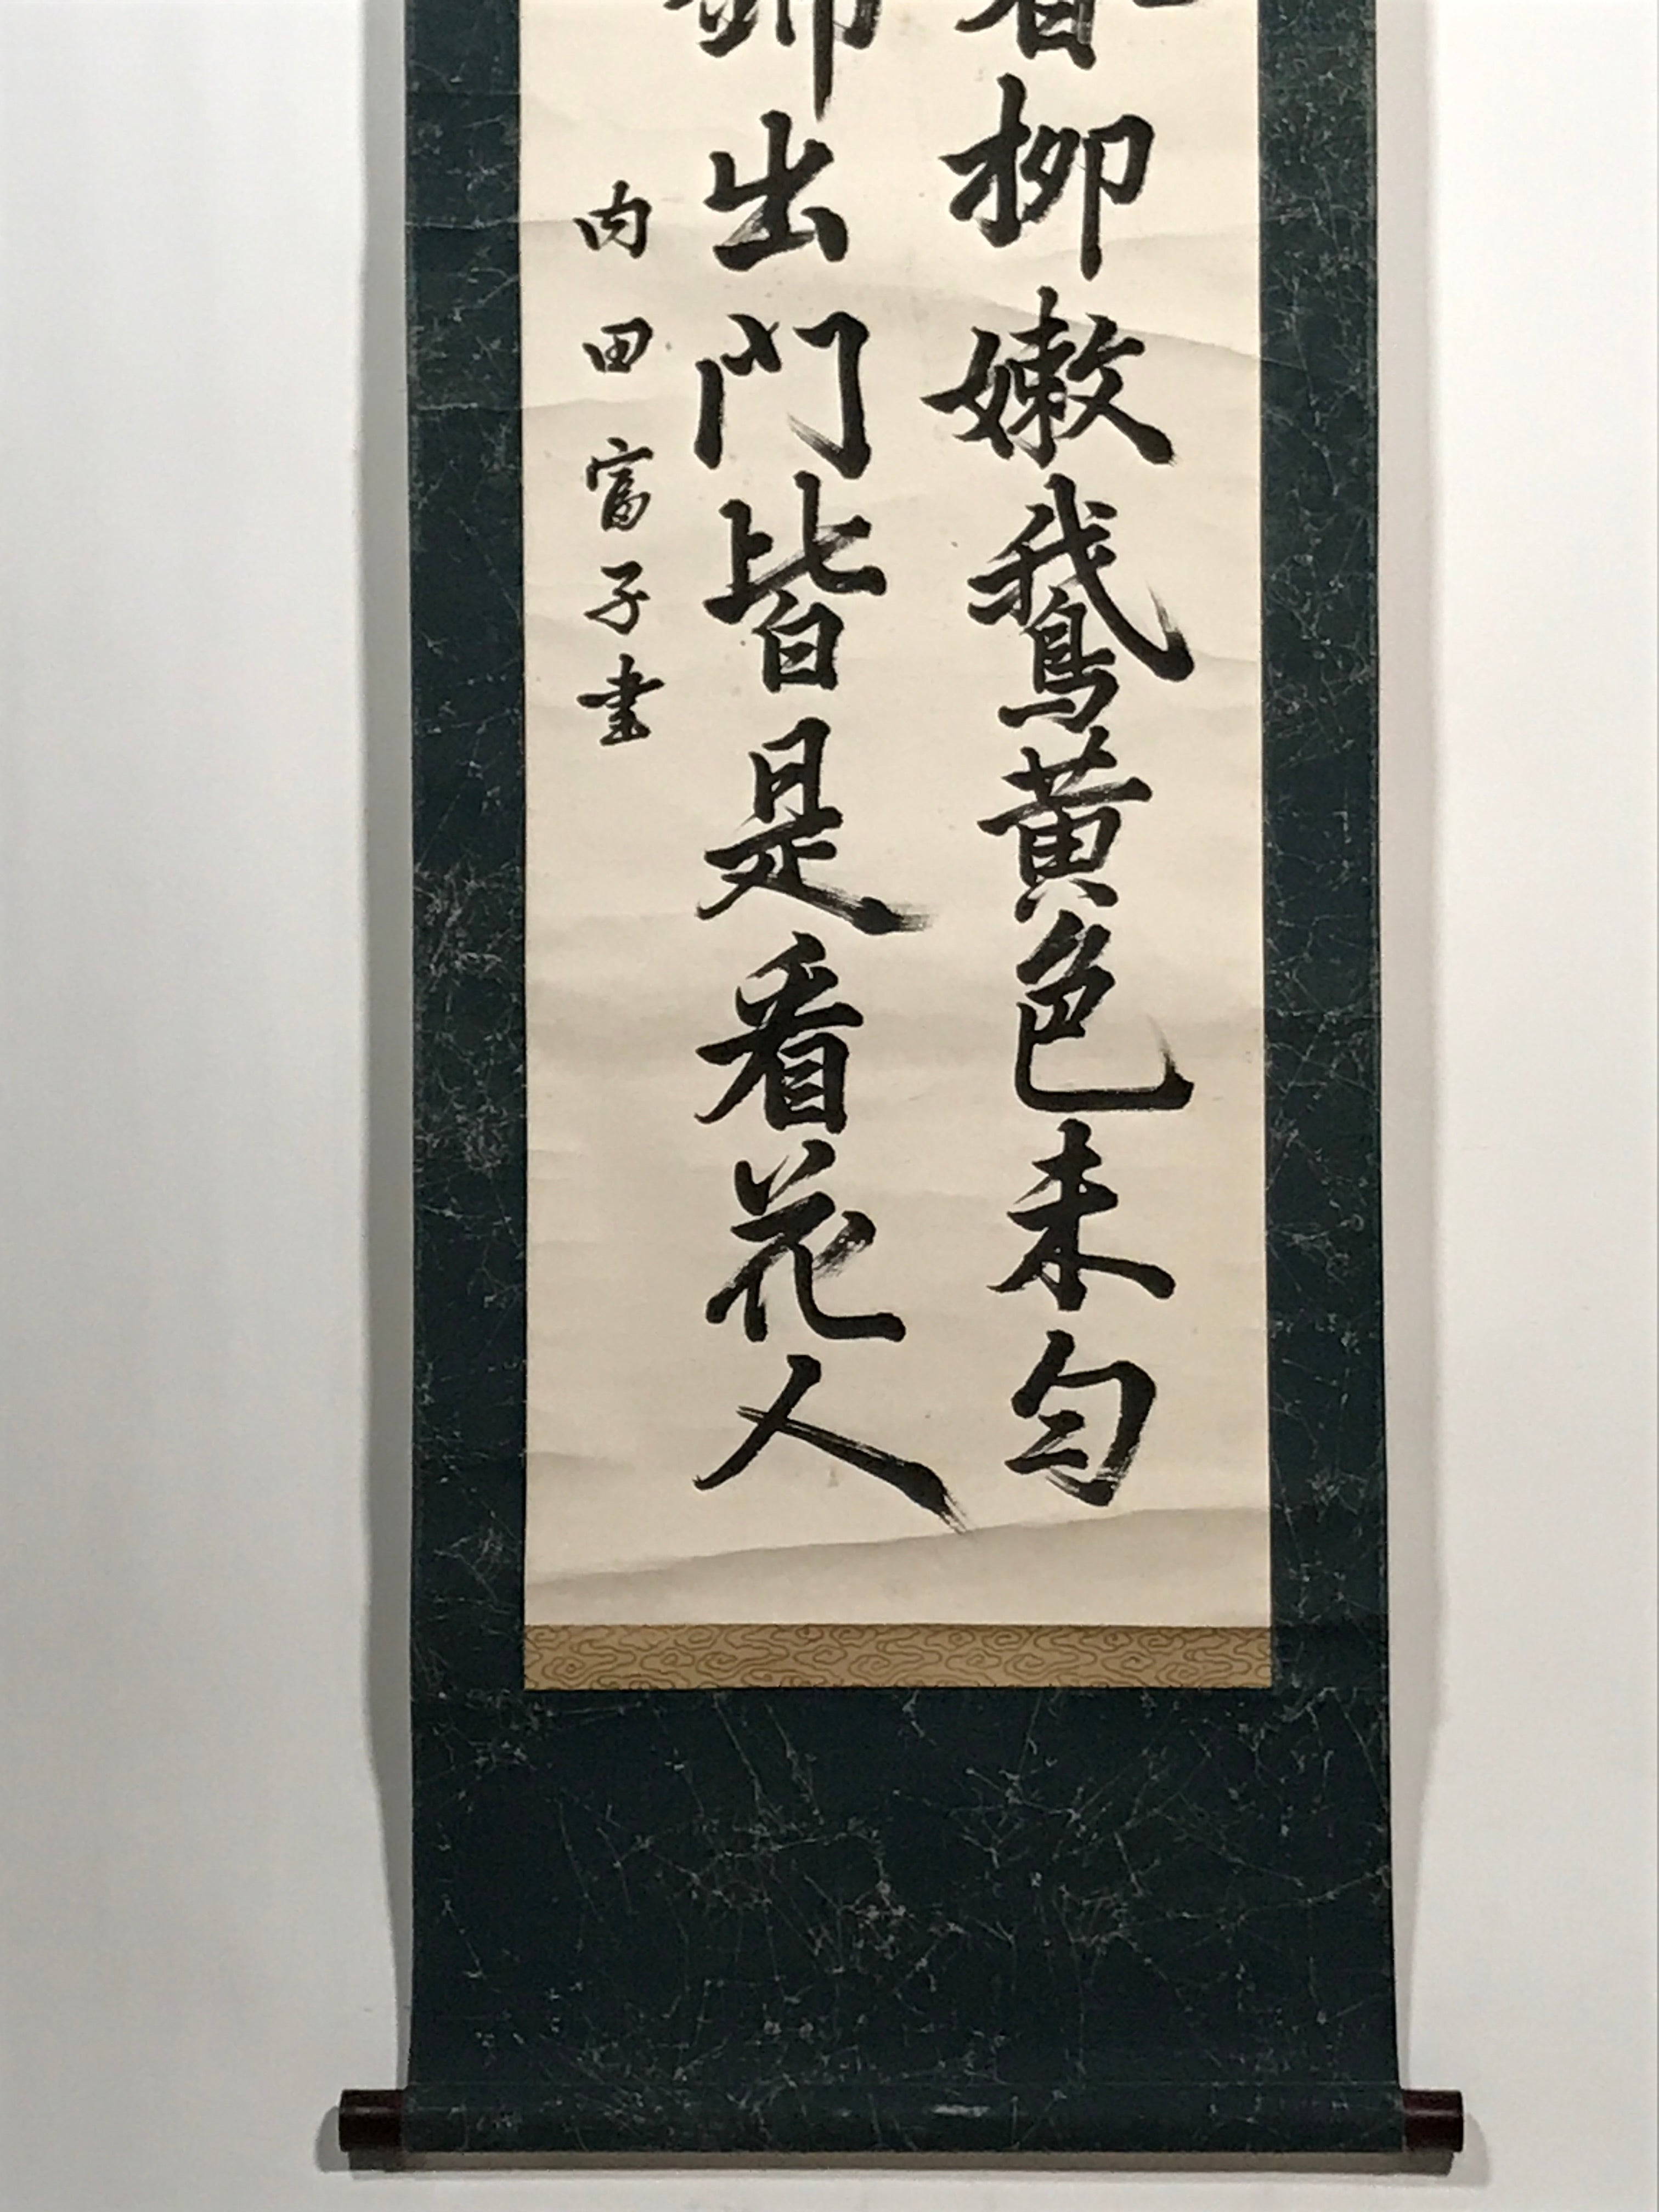 春柳嫩鵞黄色未匀
錦出門皆是看花人
内田富子書